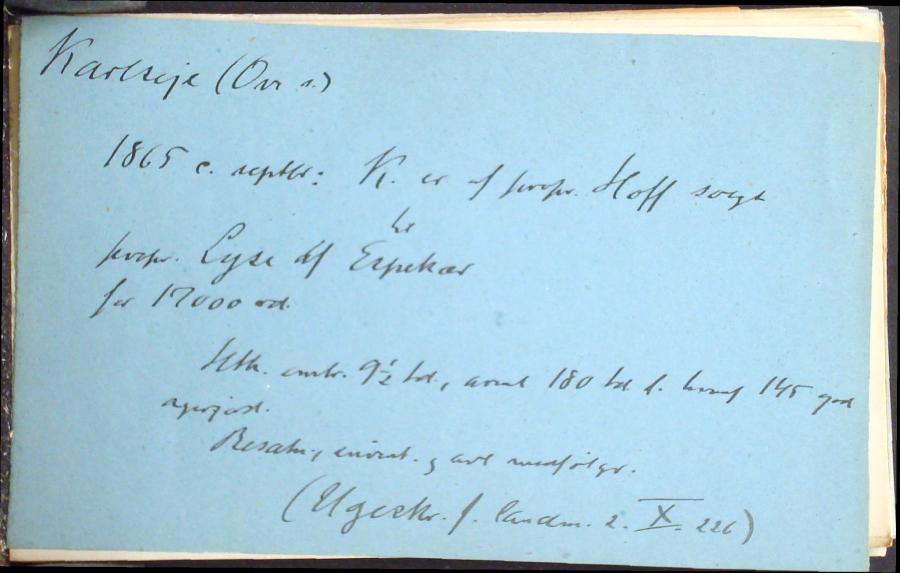 Karlseje (Ovr s.)
1865 c. septbr: K. er af propr. Hoff solgt
til
propr. Lyse af Espekær
for 17000 rd.
Htk. omtr. 9½ td., areal 180 td l. hvoraf 145 god
agerjord.
Besætn., invent. og avl medfølger.
(Ugeskr. f. landm. 2. X. 226)